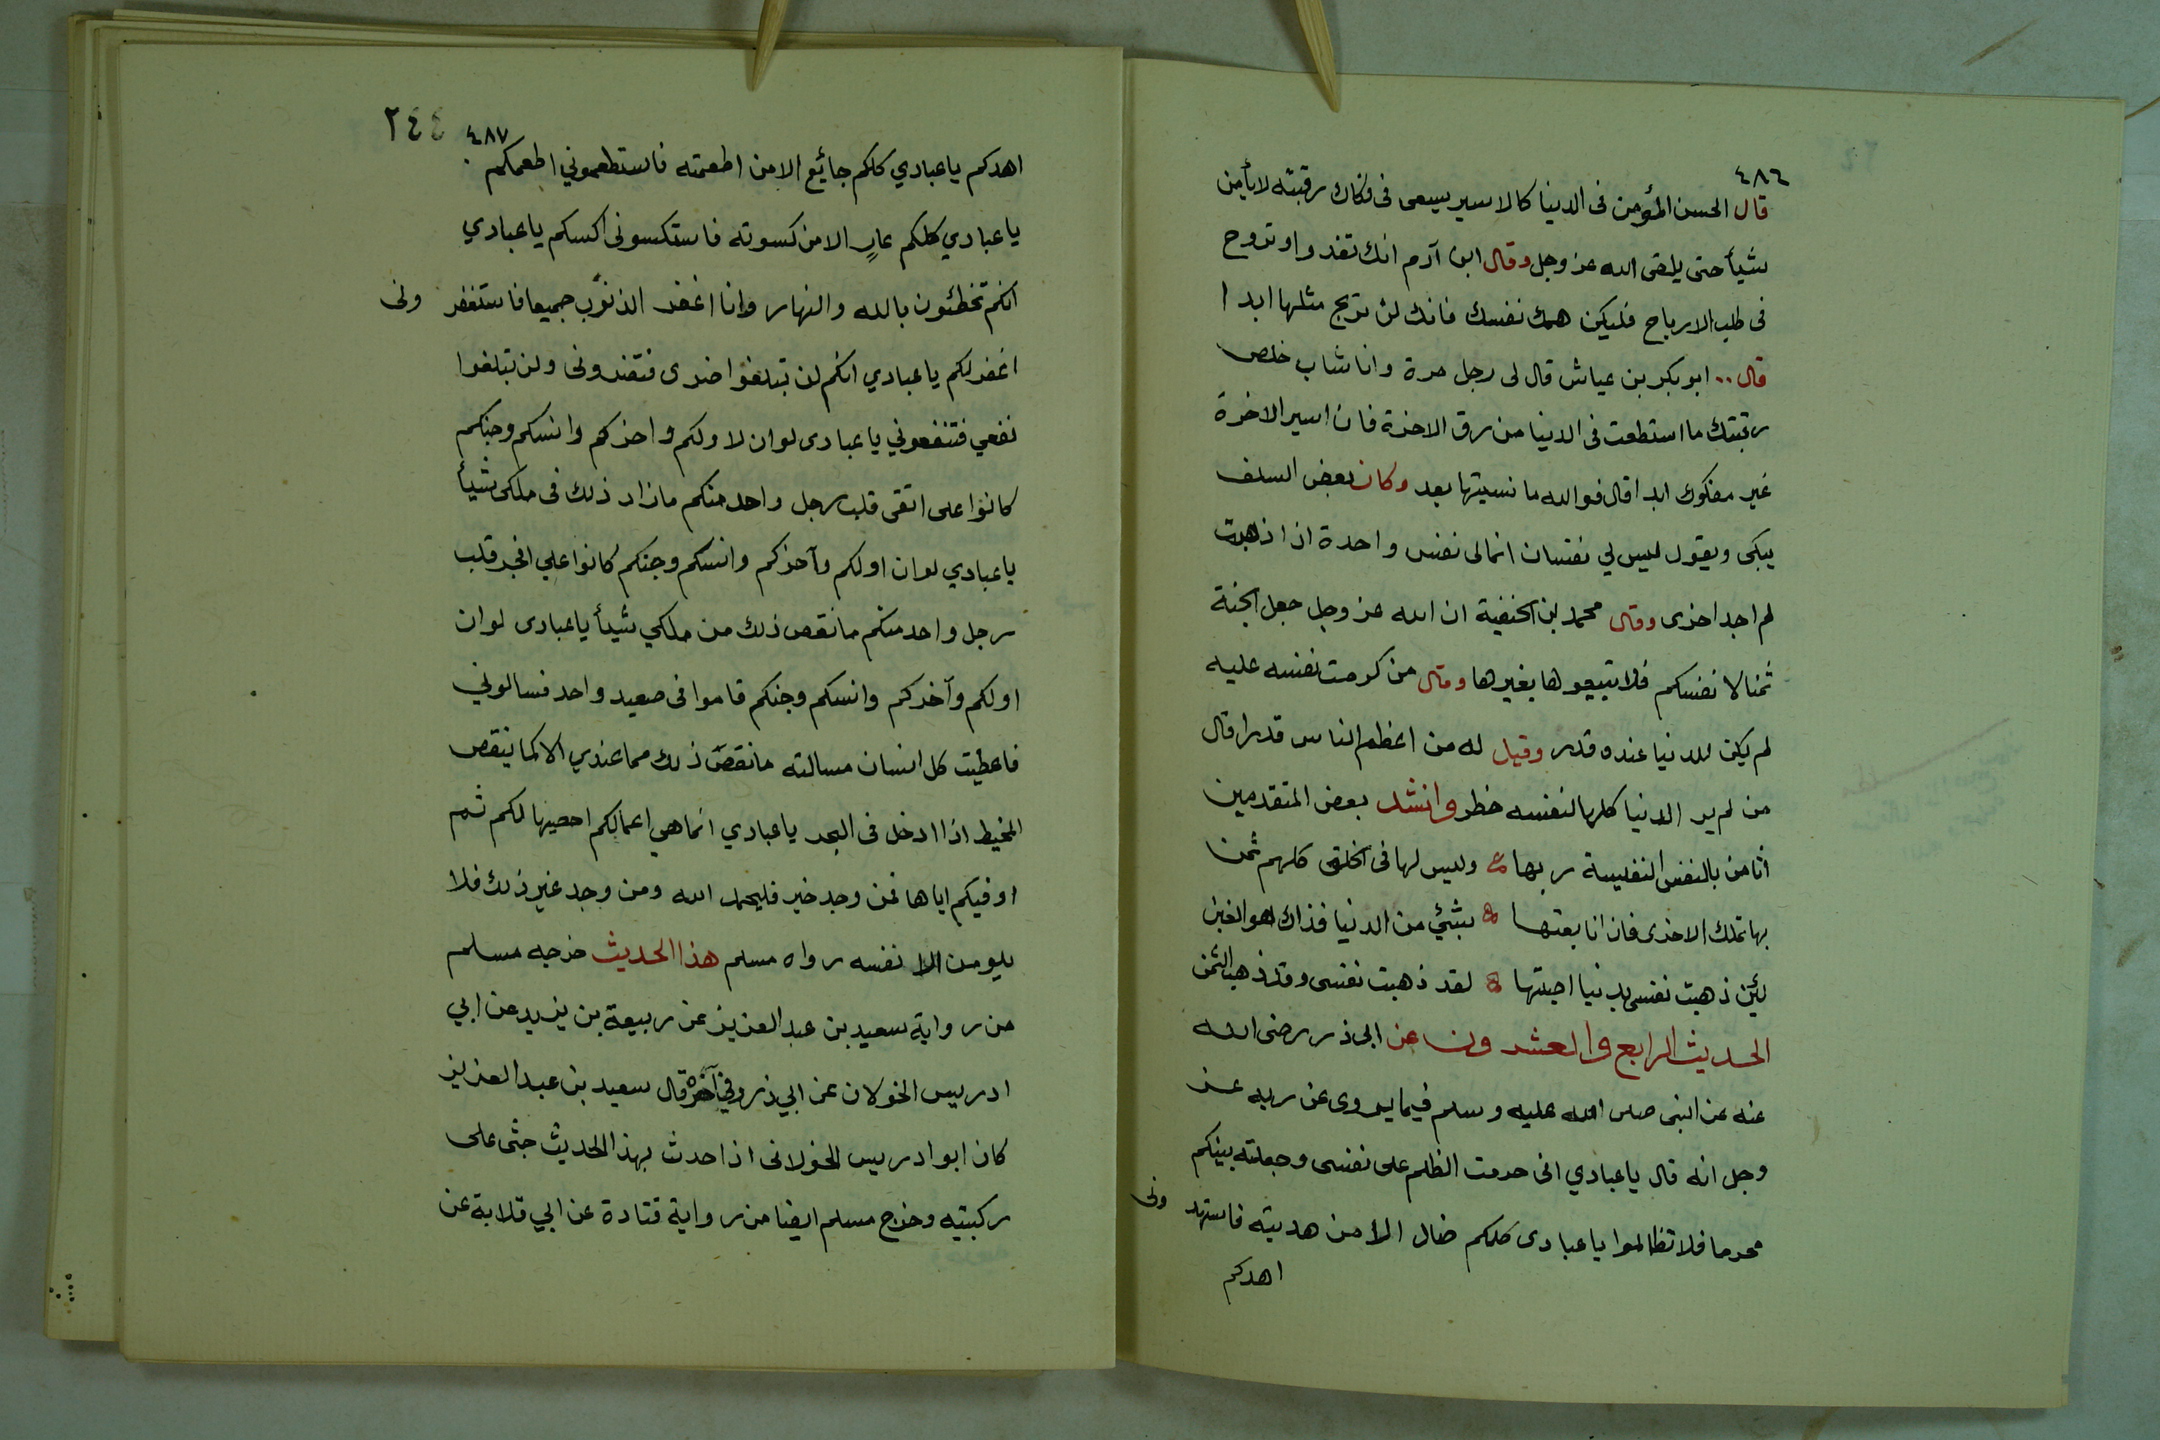 ٤٨٦
قال الحسن المؤمن فى الدنيا كالاسير يسعى فى فكاك رقبته لا يأمن
شيأ حتى يلقى الله عز وجل وقال ابن آدم انك تغدوا وتروح
فى طلب الارباح فليكن همك نفسك فانك لن تربح مثلها ابدا
قال .. ابو بكر بن عياش قال لى رجل مرة وانا شاب خلص
رقبتك ما استطعت فى الدنيا من رق الاخرة فان اسير الاخرة
غير مفكوك ابدا قال فو الله ما نسيتها بعد وكان بعض السلف
يبكى ويقول ليس لي نفسان انما لى نفس واحدة اذا ذهبت
لم اجد اخرى وقال محمد ابن الحنفية ان الله عز وجل جعل الجنة
ثمنا لا نفسكم فلا تبيعوها بغيرها وقال من كرمت نفسه عليه
لم يكن للدنيا عنده قدر وقيل له من اعظم الناس قدرا قال
من لم ير الدنيا كلها لنفسه خطر وانشد بعض المتقدمين
اثامن بالنفس النفيسة ربها وليس لها فى الخلق كلهم ثمن
بها تملك الاخرى فان انا بعتها بشئ من الدنيا فذاك هو الغبن
لئن ذهبت نفسى بدنيا اصبتها لقد ذهبت نفسى وقد ذهب الثمن
الحديث الرابع والعشرون عن ابى ذر رضى الله
عنه عن النبى صلى الله عليه وسلم فيما يروى عن ربه عز
وجل انه قال يا عبادي انى حرمت الظلم على نفسى وجعلته بينكم
محرما فلا تظالموا يا عبادى كلكم ضال الا من هديته فاستهد ونى
اهدكم
٤٨٧ ٢٤٤
اهدكم يا عبادي كلكم جائع الا من اطعمته فاستطعموني اطعمكم
يا عبادي كلكم عارٍ الا من كسوته فاستكسونى اكسكم يا عبادي
انكم تخطئون بالله والنهار وانا اغفر الذنوب جميعا فاستغفر ونى
اغفر لكم يا عبادي انكم لن تبلغوا ضرى فتضرونى ولن تبلغوا
نفعي فتنفعوني يا عبادى لو ان لاولكم واخركم وانسكم وجنكم
كانوا على اتقى قلب رجل واحد منكم ما زاد ذلك فى ملكى شيأ
يا عبادي لو ان اولكم وآخركم وانسكم وجنكم كانوا علي افجر قلب
رجل واحد منكم ما نقص ذلك من ملكي شيأ يا عبادى لو ان
اولكم وآخركم وانسكم وجنكم قاموا فى صعيد واحد فسالوني
فاعطيت كل انسان مسالته ما نقص ذلك مما عندي الا كما ينقص
المخيط اذا ادخل فى البحر يا عبادي انما هي اعمالكم احصيها لكم ثم
اوفيكم اياها فمن وجد خير فليحمد الله ومن وجد غير ذلك فلا
يلومن الا نفسه رواه مسلم هذا الحديث خرجه مسلم
من رواية سعيد بن عبد العزيز عن ربيعة بن يزيد عن ابي
ادريس الخولان عن ابي ذر وفي آخره قال سعيد بن عبد العزيز
كان ابو ادريس الخولانى اذا حدث بهذا الحديث جثى على
ركبتيه وخرج مسلم ايضا من رواية قتادة عن ابي قلابة عن